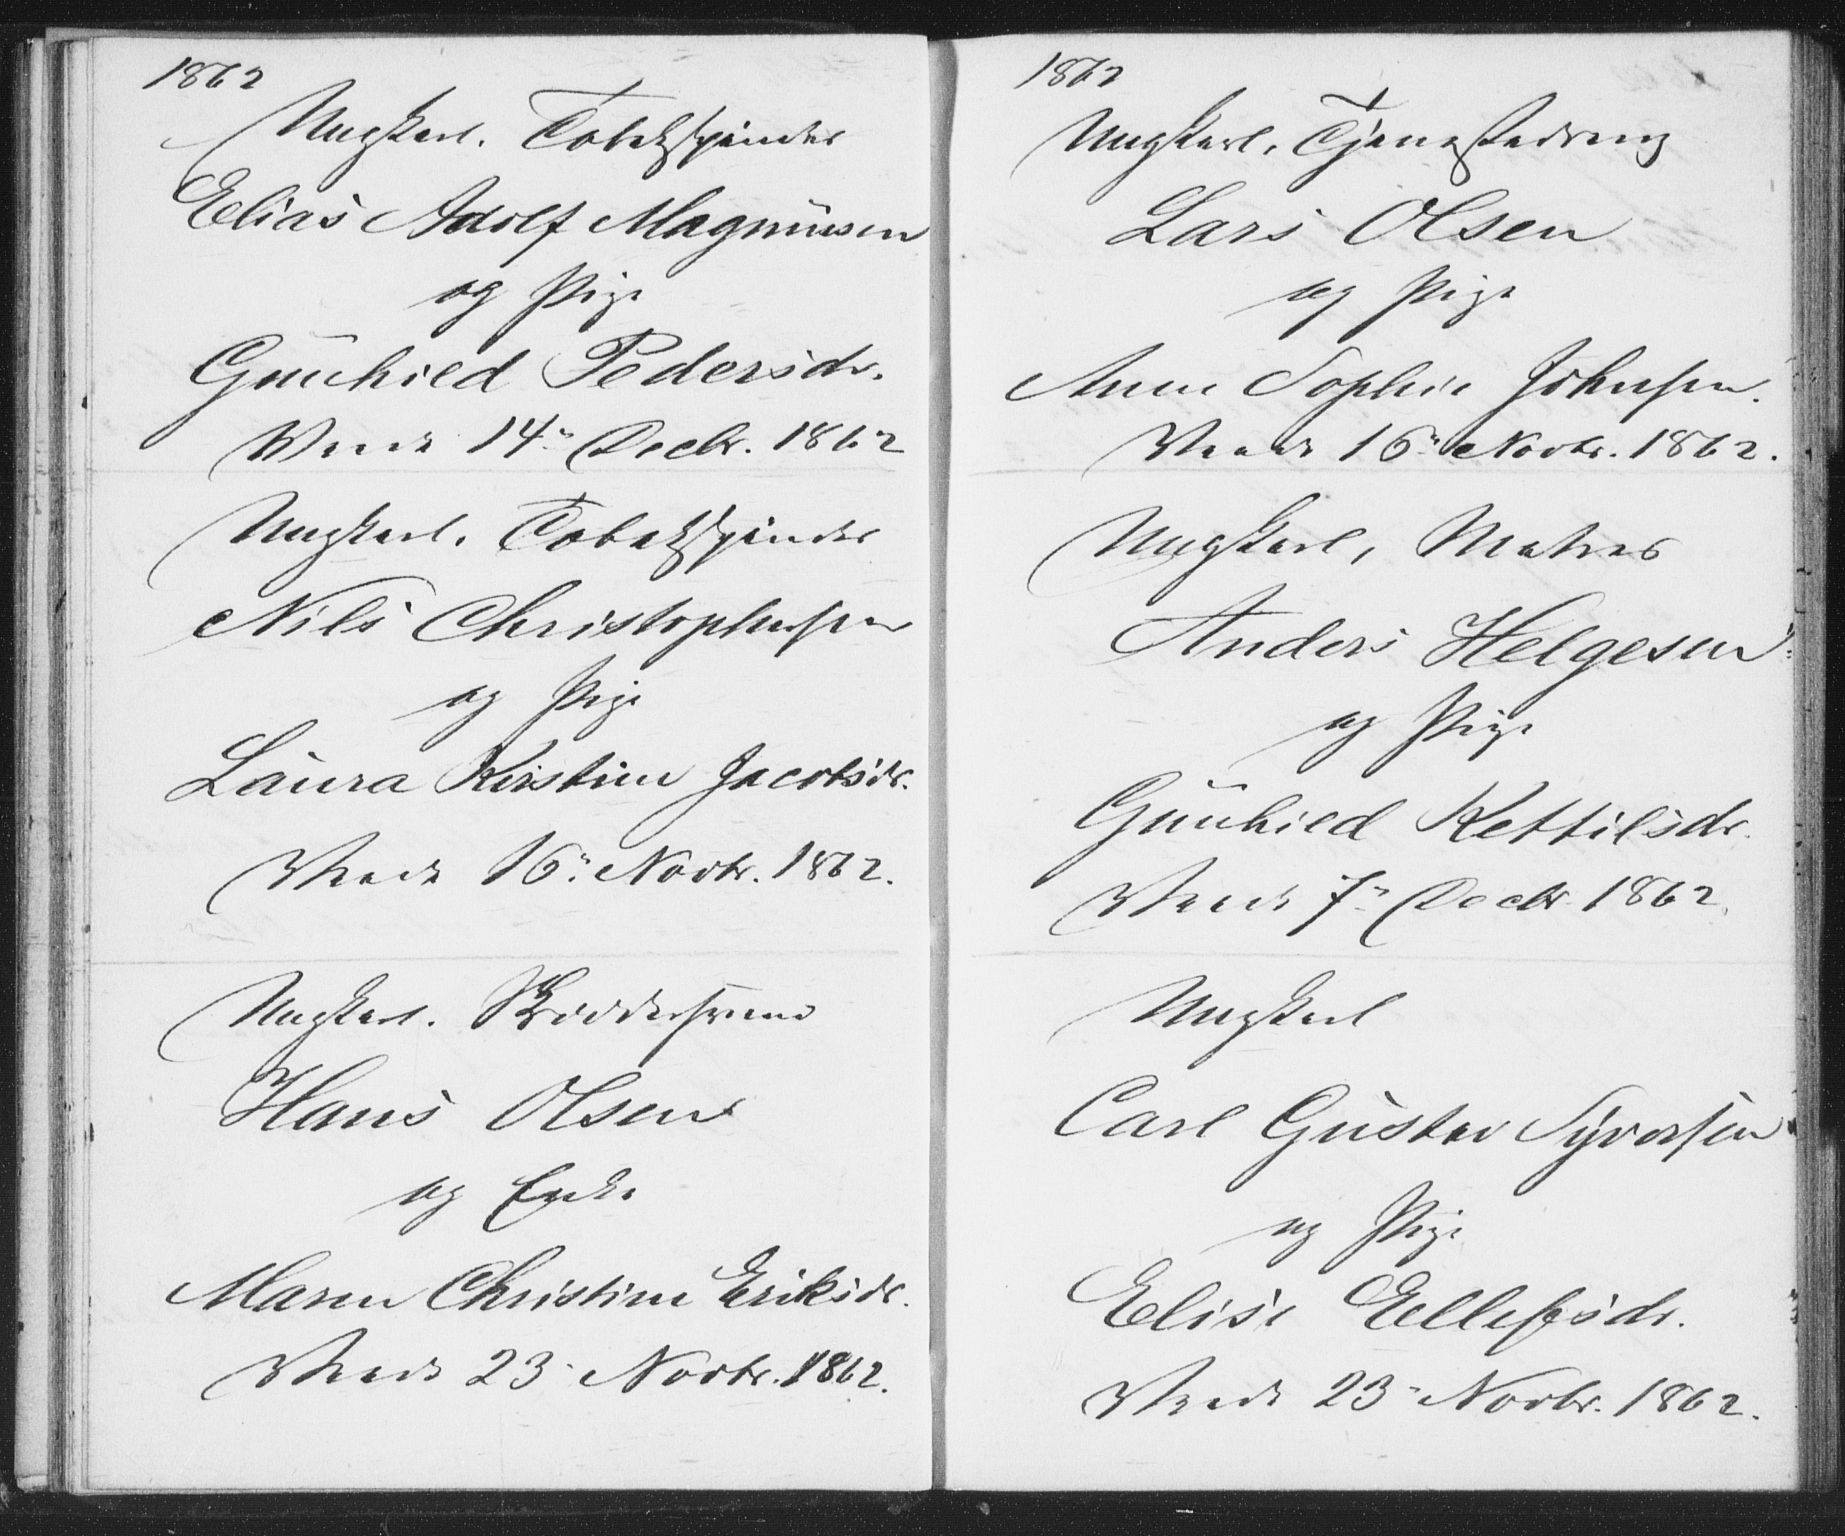 1862
Ungkarl. Tobakspinder
Elias Adolf Magnusen
og Pige
Gunhild Pedersdr.
Viede 14de Decbr. 1862
Ungkarl. Tobakspinder
Nils Christophersen
og Pige
Laura Kirstine Jacobsdr.
Viede 16de Novbr. 1862.
Ungkarl. Skräddersvend
Hans Olsen
og Enke
Maren Christine Eriksdr.
Viede 23 Novbr. 1862.
1862
Ungkarl, Tjenestedreng
Lars Olsen
og Pige
Anne Sophie Johnsen.
Viede 16 Novbr. 1862.
Ungkarl, Matros
Anders Helgesen
og Pige
Gunhild Kettilsdr.
Viede 7 Decbr 1862.
Ungkarl
Carl Gustav Syversen
og Pige
Elise Ellefsdr.
Viede 23 Novbr. 1862.